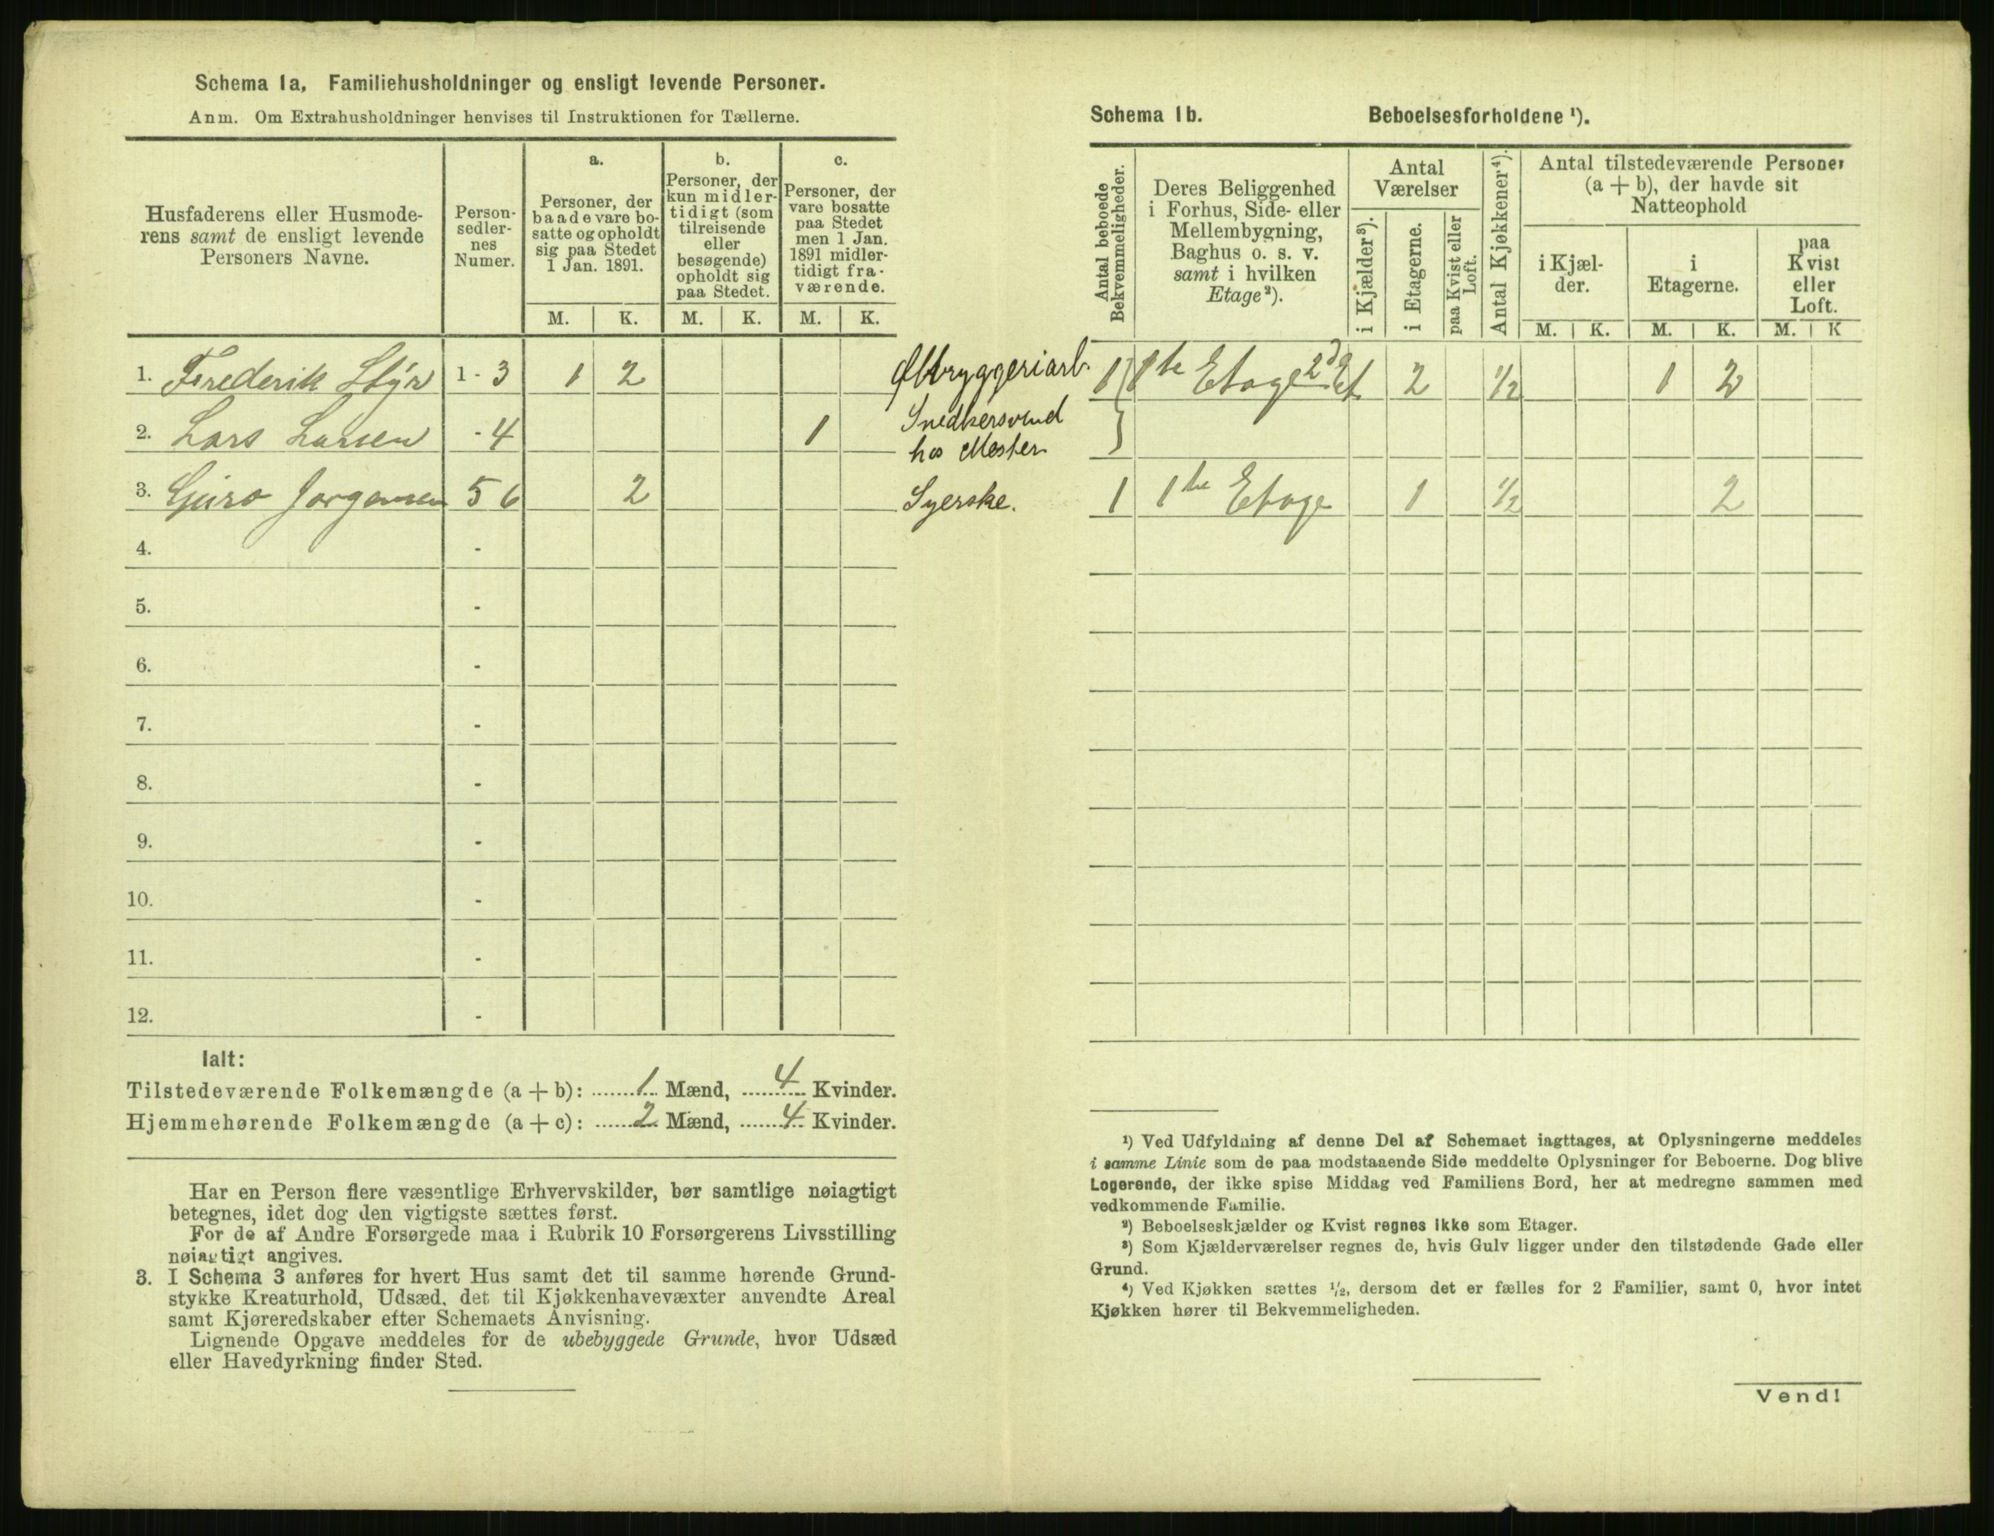 Schema 1a. Familiehusholdninger og ensligt levende Personer.
Anm. Om Extrahusholdninger henvises til Instruktionen for Tællerne.
Husfaderens eller Husmoderens samt de ensligt levende Personers Navne.
Personsedlernes Numer.
a.
Personer, der baade vare bosatte og opholdt sig paa Stedet 1 Jan. 1891.
b.
Personer, der kun midlertidigt (som tilreisende eller besøgende) opholdt sig paa Stedet.
c.
Personer, der vare bosatte paa Stedet men 1 Jan. 1891 midlertidigt fraværende.
M. K. M. K. M. K.
1. Frederik Styr 1 - 3 1 2 Ølbryggeriarb.
2. Lars Larsen - 4 1 Snedkersvend hos Mester
3. Guro Jorgensen 5 6 2 Syerske.
4. -
5. -
6. -
7. -
8. -
9. -
10. -
11. -
12. -
Ialt:
Tilstedeværende Folkemængde (a + b): 1 Mænd, 4 Kvinder.
Hjemmehørende Folkemængde (a + c): 2 Mænd, 4 Kvinder.
Har en Person flere væsentlige Erhvervskilder, bør samtlige nøiagtigt
betegnes, idet dog den vigtigste sættes først.
For de af Andre Forsørgede maa i Rubrik 10 Forsørgerens Livsstilling
nøiagtigt angives.
3. I Schema 3 anføres for hvert Hus samt det til samme hørende Grund-
stykke Kreaturhold, Udsæd, det til Kjøkkenhavevæxter anvendte Areal
samt Kjøreredskaber efter Schemaets Anvisning.
Lignende Opgave meddeles for de ubebyggede Grunde, hvor Udsæd
eller Havedyrkning finder Sted.
Schema 1b. Beboelsesforholdene ¹).
Antal beboede Bekvemmeligheder.
Deres Beliggenhed i Forhus, Side- eller Mellembygning, Baghus o. s. v. samt i hvilken Etage²).
Antal Værelser
i Kjælder³).
i Etagerne.
paa Kvist eller Loft.
Antal Kjøkkener⁴).
Antal tilstedeværende Personer (a + b), der havde sit Natteophold
i Kjælder.
i Etagerne.
paa Kvist eller Loft.
M. K. M. K. M. K
1 1te Etage 2det 2 1/2 1 2
1 1te Etage 1 1/2 2
¹) Ved Udfyldning af denne Del af Schemaet iagttages, at Oplysningerne meddeles
i samme Linie som de paa modstaaende Side meddelte Oplysninger for Beboerne. Dog blive
Logerende, der ikke spise Middag ved Familiens Bord, her at medregne sammen med
vedkommende Familie.
²) Beboelseskjælder og Kvist regnes ikke som Etager.
³) Som Kjælderværelser regnes de, hvis Gulv ligger under den tilstødende Gade eller
Grund.
⁴) Ved Kjøkken sættes 1/2, dersom det er fælles for 2 Familier, samt 0, hvor intet
Kjøkken hører til Bekvemmeligheden.
Vend!